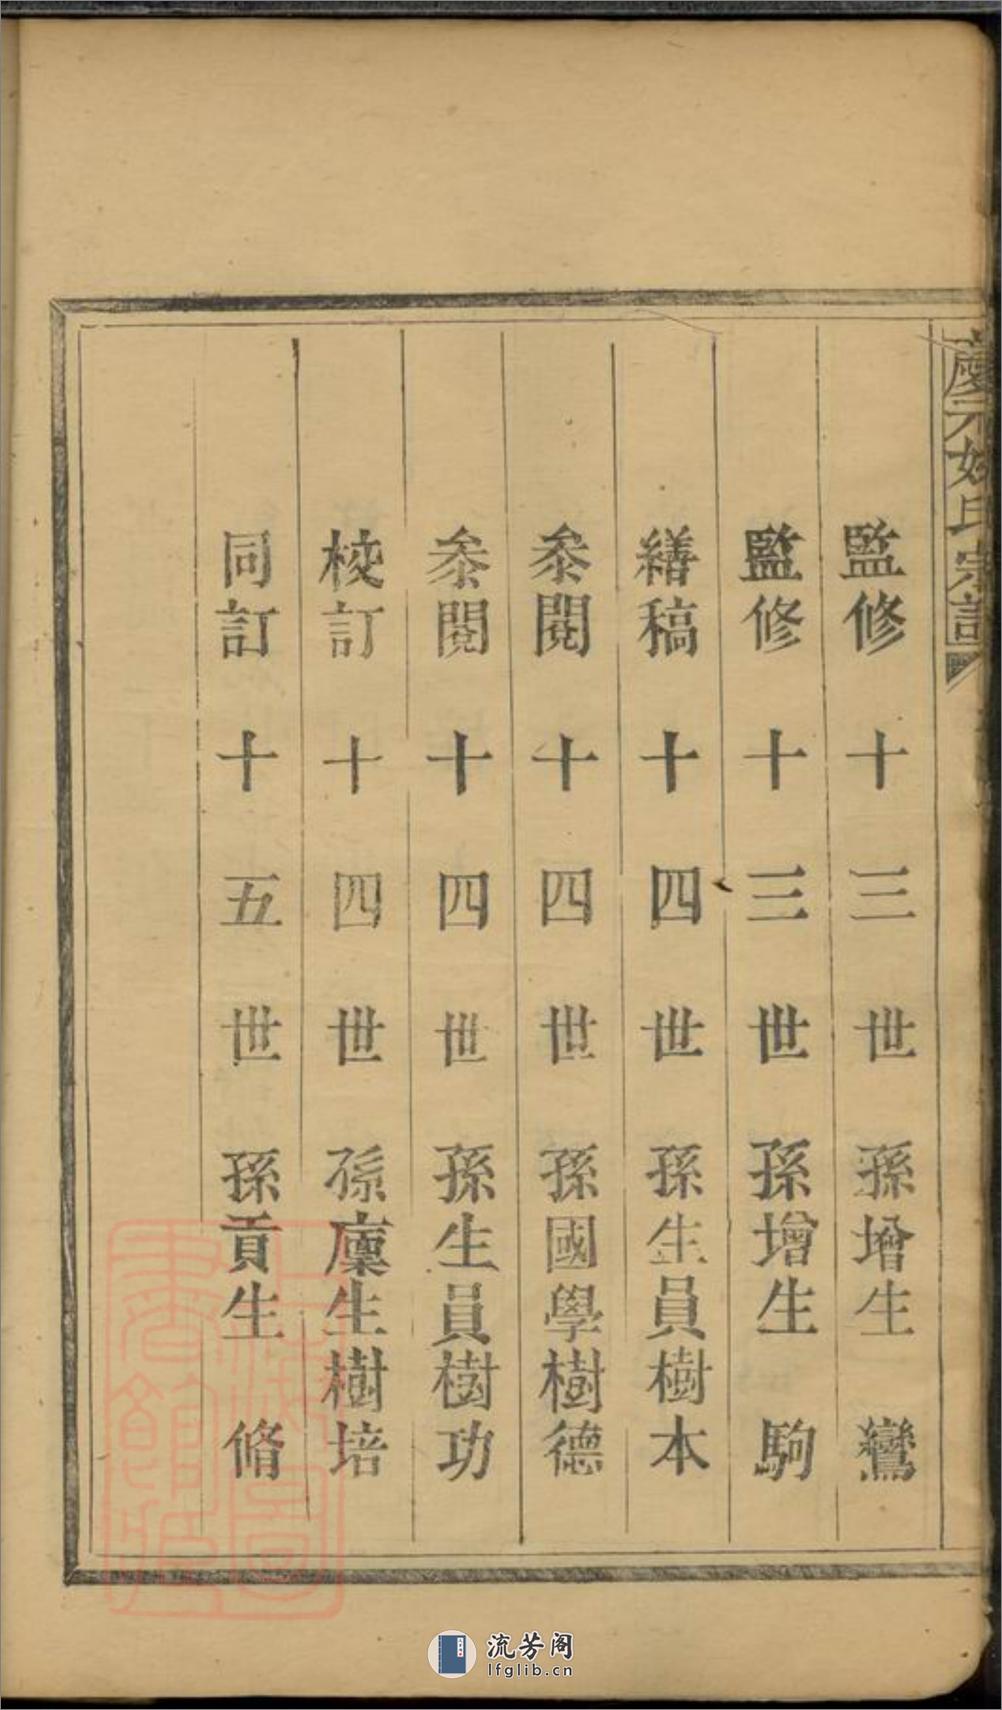 慶元姚氏宗譜
監修十三世孫增生鸞
監修十三世孫增生駒
繕稿十四世孫生員樹本
叅閱十四世孫國學樹德
叅閱十四世孫生員樹功
校訂十四世孫廩生樹培
同訂十五世孫貢生脩
上海圖書館藏
流芳阁
lfglib.cn